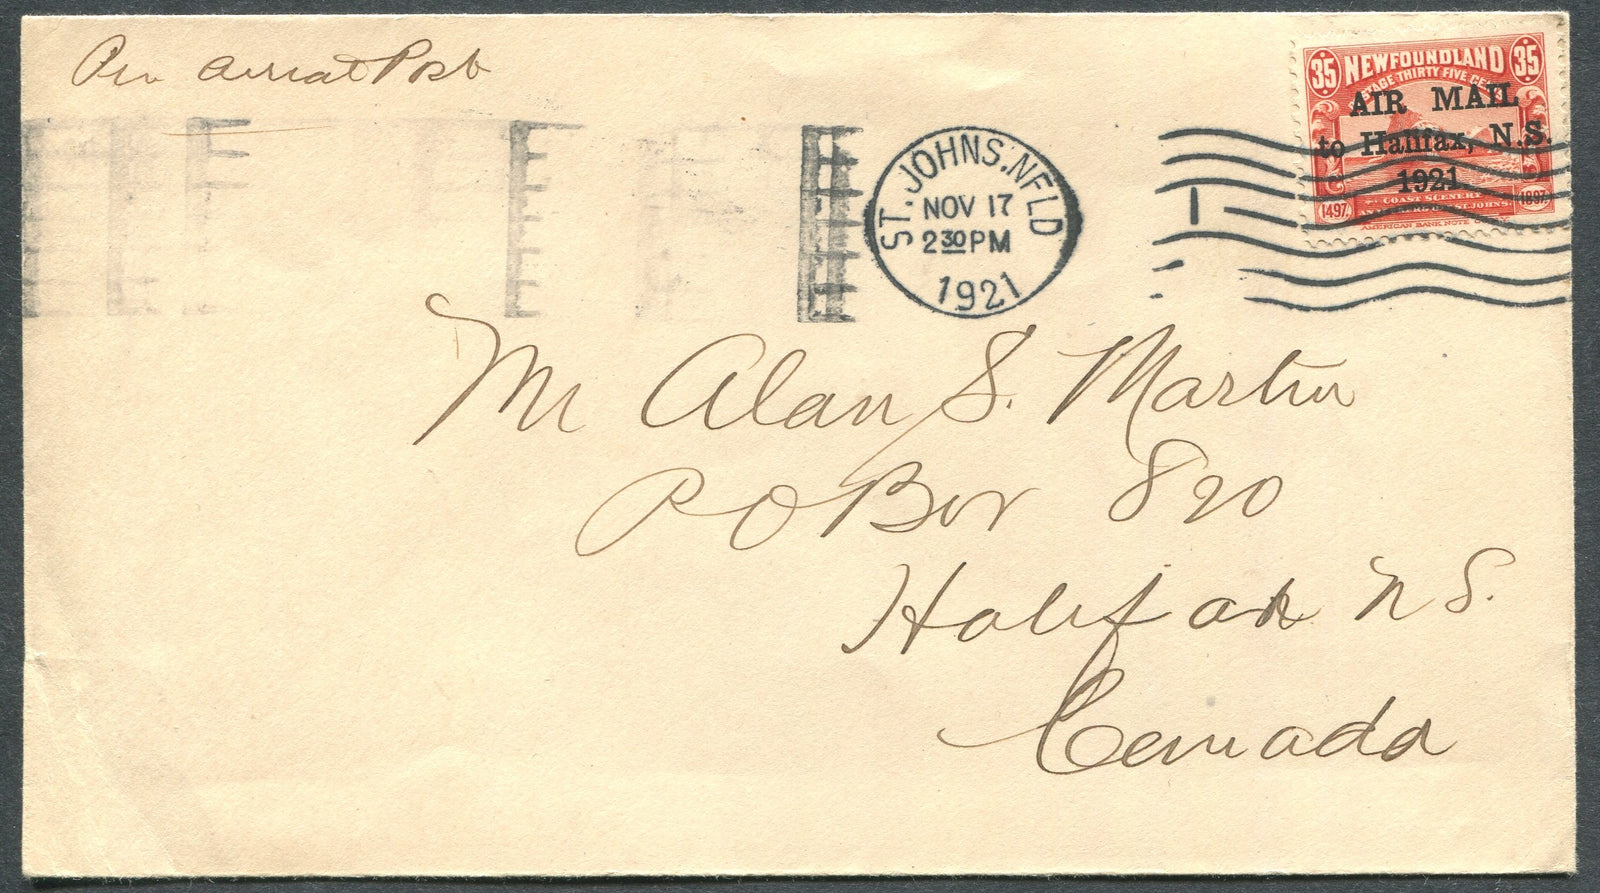 Per aerial Post
35 NEWFOUNDLAND 35
POSTAGE THIRTY FIVE CENTS
AIR MAIL
to Halifax, N.S.
1921
COAST SCENERY
ST. JOHNS
1497. 1897.
AMERICAN BANK NOTE
ST. JOHNS. NFLD
NOV 17
2 30 PM
1921
1
Mr Alan S. Martin
P O Box 820
Halifax N S.
Canada